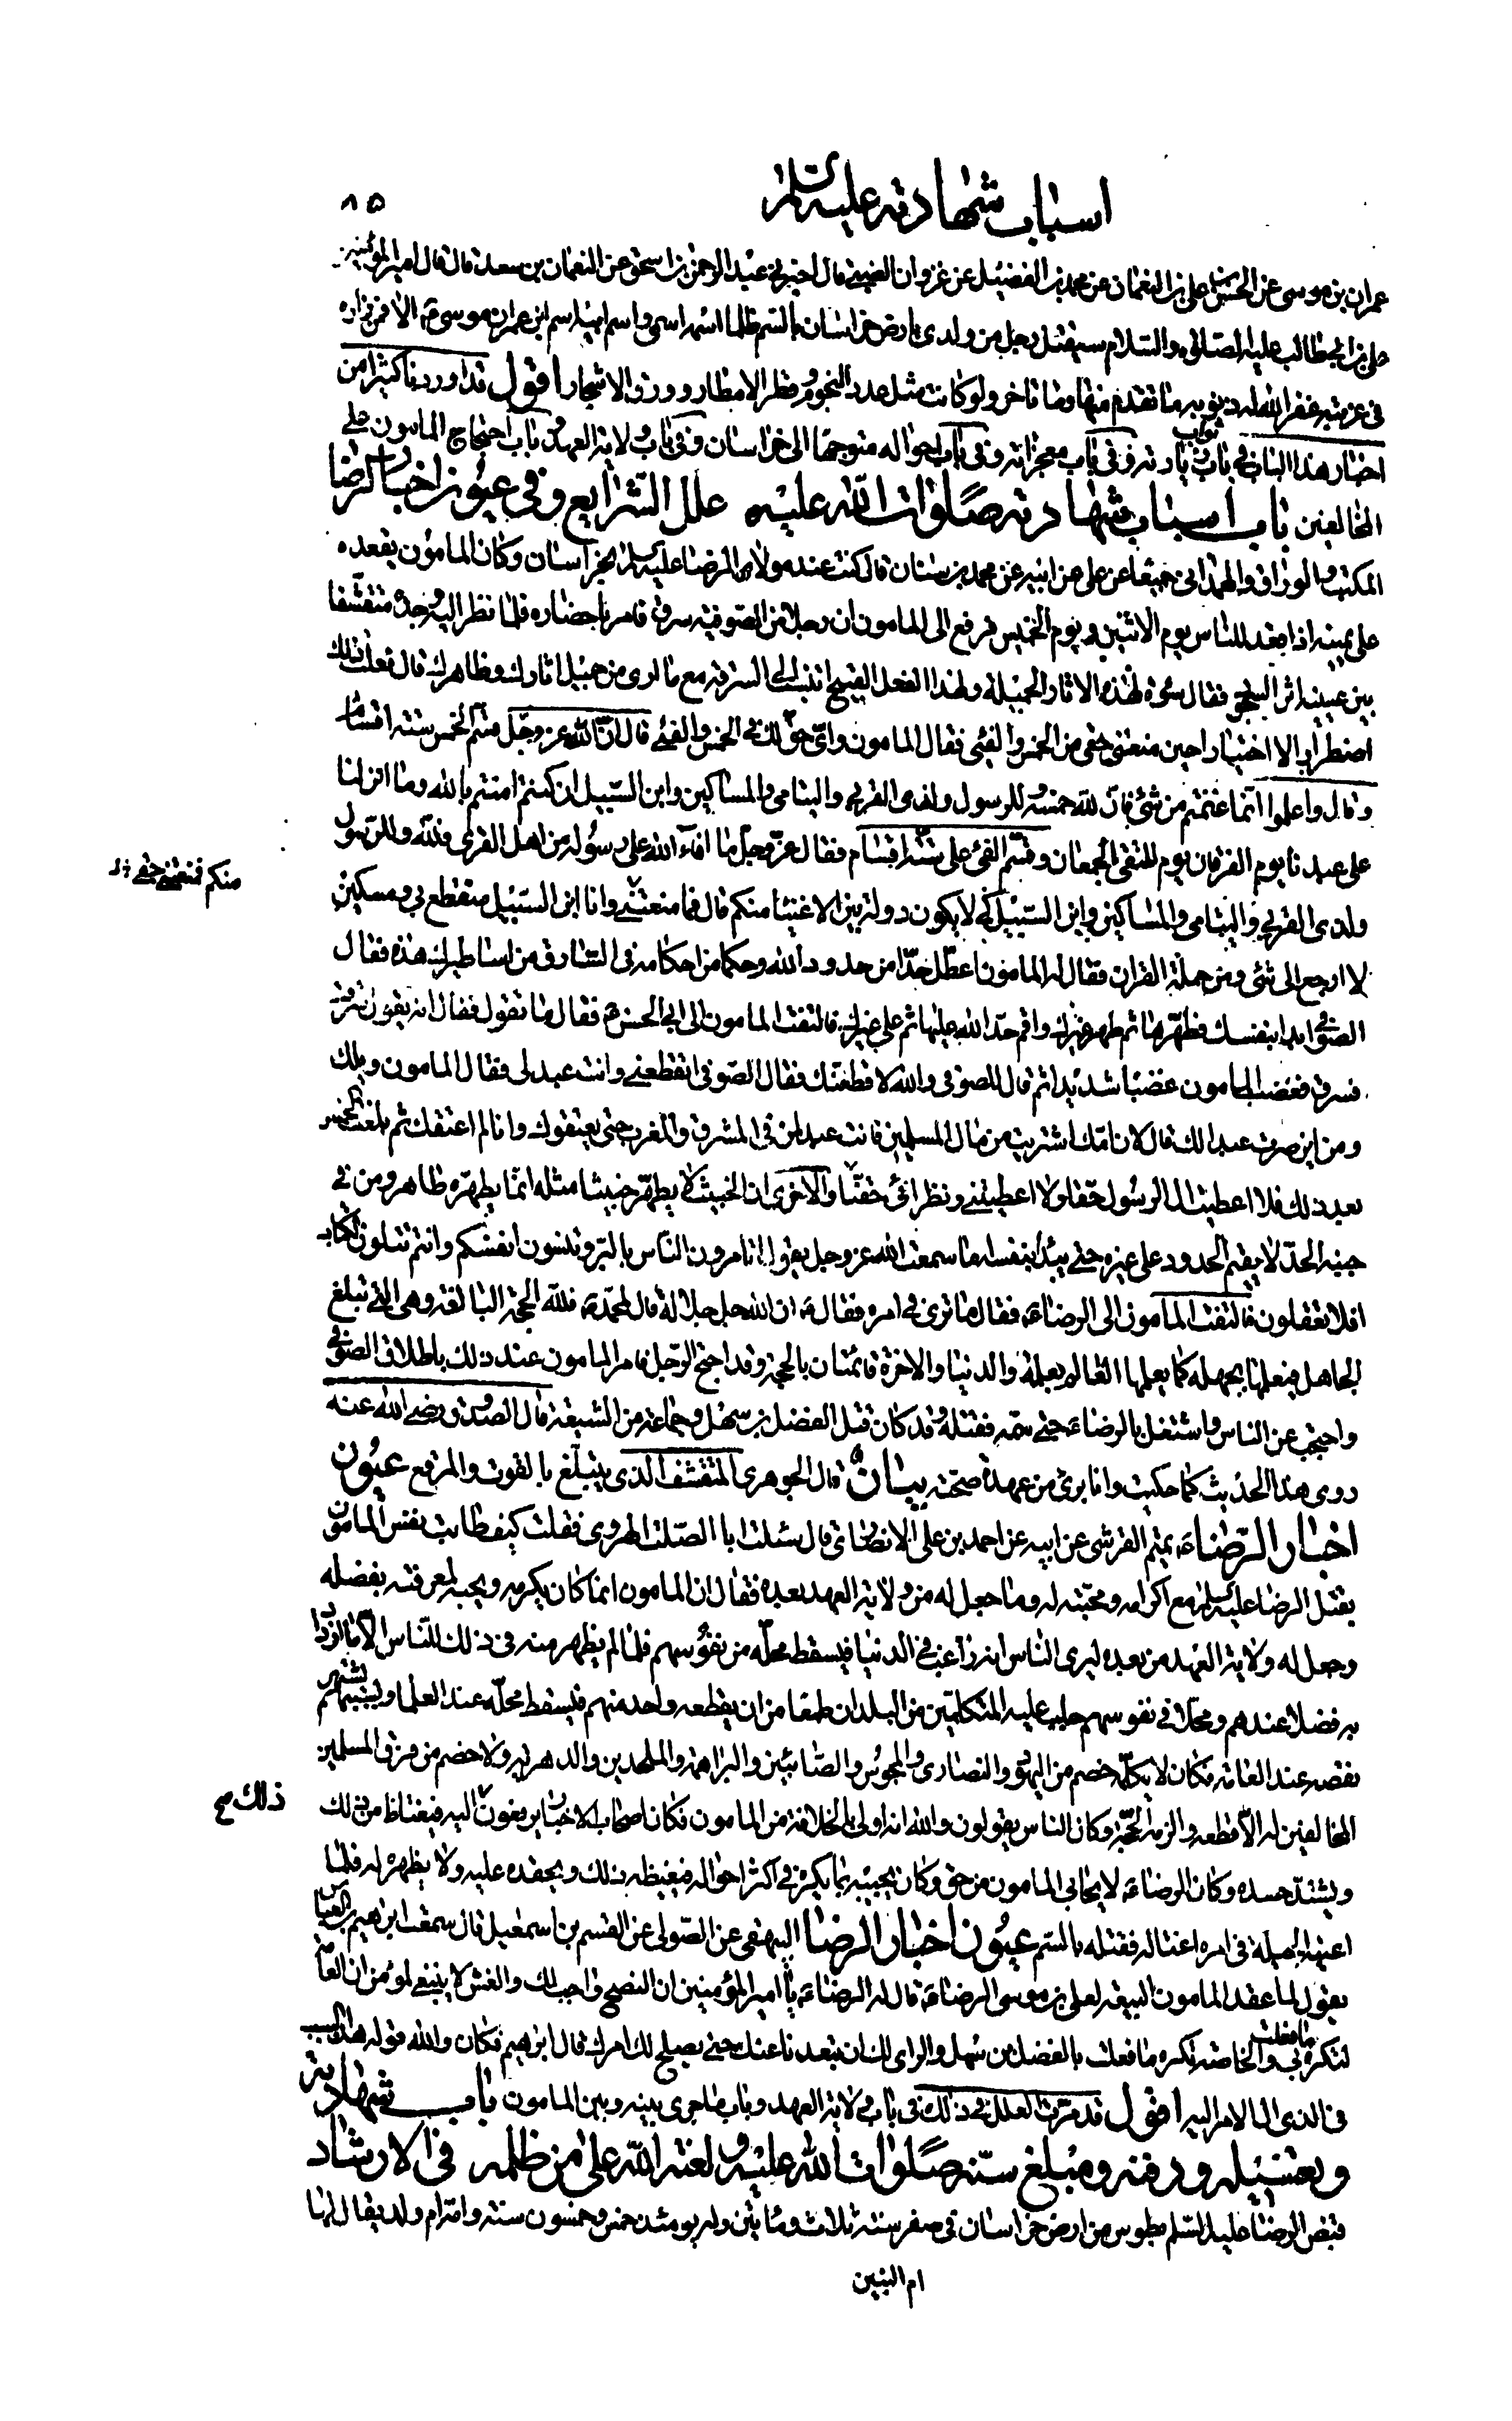 اسباب شهادته عليه السلام
٨٥
عمران بن موسى عن الحسن بن على بن النعمان عن محمد بن الفضيل عن غزوان الضبى قال اخبرنى عبد الرحمن بن اسحق عن النعمان بن سعد قال قال امير المؤمنين
على بن ابى طالب عليه الصلوة والسلام سيقتل رجل من ولدى بارض خراسان بالسم ظلما اسمه اسمى واسم ابيه اسم ابن عمران موسى ع الا فمن زاره
فى غربته غفر الله له ذنوبه ما تقدم منها وما تاخر ولو كانت مثل عدد النجوم وقطر الامطار وورق الاشجار اقول قد اوردنا كثيرا من
اخبار هذا الباب فى باب ثواب زيارته وفى باب معجزاته وفى باب احواله متوجها الى خراسان وفى باب ولاية العهد وباب احتجاج المامون على
المخالفين باب اسباب شهادته صلوات الله عليه علل الشرايع وفى عيون اخبار الرضا
المكتب والوراق والهمدانى جميعا عن على عن ابيه عن محمد بن سنان قال كنت عند مولاى الرضا عليه السلام بخراسان وكان المامون يقعده
على يمينه اذا قعد للناس يوم الاثنين ويوم الخميس فرفع الى المامون ان رجلا من الصوفية سرق فامر باحضاره فلما نظر اليه وجده متقشفا
بين عينيه اثر السجود فقال سوءة لهذه الاثار الجميلة ولهذا الفعل القبيح اتنسب الى السرقة مع ما ارى من جميل اثارك وظاهرك قال فعلت ذلك
اضطرارا لا اختيارا حين منعتنى حقى من الخمس والفيئ فقال المامون واى حق لك فى الخمس والفيئ قال ان الله عز وجل قسم الخمس ستة اقسام
وقال واعلموا انما غنمتم من شئ فان لله خمسه وللرسول ولذى القربى واليتامى والمساكين وابن السبيل ان كنتم امنتم بالله وما انزلنا
على عبدنا يوم الفرقان يوم التقى الجمعان وقسم الفئ على ستة اقسام فقال عز وجل ما افاء الله على رسوله من اهل القرى فلله وللرسول
ولذى القربى واليتامى والمساكين وابن السبيل كى لا يكون دولة بين الاغنيا منكم قال فما منعتنى وانا ابن السبيل منقطع بى ومسكين
منكم فمنعتنى حقى
لا ارجع الى شئ ومن حملة القران فقال له المامون اعطل حدا من حدود الله وحكما من احكامه فى السارق من اساطيرك هذه فقال
الصوفى ابدا بنفسك فطهرها ثم طهر غيرك واقم حد الله عليها ثم على غيرك فالتفت المامون الى ابى الحسن ع فقال ما تقول فقال انه يقول سرقت
فسرق فغضب المامون غضبا شديدا ثم قال للصوفى والله لاقطعنك فقال الصوفى اتقطعنى وانت عبد لى فقال المامون ويلك
ومن اين صرت عبدا لك قال لان امك اشتريت من مال المسلمين فانت عبد لمن فى المشرق والمغرب حتى يعتقوك وانا لم اعتقك ثم بلعت الخمس
بعد ذلك فلا اعطيت ال الرسول حقا ولا اعطيتنى ونظرائى حقنا والاخرى ان الخبيث لا يطهر خبيثا مثله انما يطهره طاهر ومن فى
جنبه الحد لا يقيم الحدود على غيره حتى يبدأ بنفسه اما سمعت الله عز وجل يقول اتامرون الناس بالبر وتنسون انفسكم وانتم تتلون الكتاب
افلا تعقلون فالتفت المامون الى الرضا ع فقال ما ترى فى امره فقال ع ان الله جل جلاله قال لمحمد ص فلله الحجة البالغة وهى التى تبلغ
الجاهل فيعلمها بجهله كما يعلمها العالم بعلمه والدنيا والاخرة قائمتان بالحجة وقد احتج الرجل فامر المامون عند ذلك باطلاق الصوفى
واحتجب عن الناس واشتغل بالرضا ع حتى سمه فقتله وقد كان قتل الفضل بن سهل وجماعة من الشيعة قال الصدوق رضى الله عنه
روى هذا الحديث كما حكيت وانا برئ من عهدة صحته بيان قال الجوهرى المتقشف الذى يتبلغ بالقوت والمرقع عيون
اخبار الرضا ع تميم القرشى عن ابيه عن احمد بن على الانصارى قال سئلت ابا الصلت الهروى فقلت كيف طابت نفس المامون
بقتل الرضا عليه السلام مع اكرامه ومحبته له وما جعل له من ولاية العهد بعده فقال ان المامون انما كان يكرمه ويحبه لمعرفته بفضله
وجعل له ولاية العهد من بعده ليرى الناس انه راغب فى الدنيا فيسقط محله من نفوسهم فلما لم يظهر منه فى ذلك للناس الا ما ازداد
به فضلا عندهم ومحلا فى نفوسهم جلب عليه المتكلمين من البلدان طمعا من ان يقطعه واحد منهم فيسقط محله عند العلما وبسببهم يشتهر
نقصه عند العامة فكان لا يكلمه خصم من اليهود والنصارى والمجوس والصابئين والبراهمة والملحدين والدهرية ولا خصم من فرق المسلمين
المخالفين له الا قطعه والزمه الحجة وكان الناس يقولون والله انه اولى بالخلافة من المامون فكان اصحاب الاخبار يرفعون اليه فيغتاظ من ذلك
ذلك صح
ويشتد حسده وكان الرضا ع لا يحابى المامون من حق وكان يجيبه بما يكره فى اكثر احواله فيغيظه ذلك ويحقده عليه ولا يظهره له فلما
اعيته الحيلة فى امره اغتاله فقتله بالسم عيون اخبار الرضا البيهقى عن الصولى عن القسم بن اسمعيل قال سمعت ابرهيم بن العباس
يقول لما عقد المامون البيعة لعلى بن موسى الرضا ع قال له الرضا ع يا امير المؤمنين ان النصح واجب لك والغش لا ينبغى لمؤمن ان العامة
لتكره ما فعلت بى والخاصة تكره ما فعلت بالفضل بن سهل والراى لك ان تبعدنا عنك حتى يصلح لك امرك قال ابرهيم فكان والله قوله هذا السبب
فى الذى ال الامر اليه اقول قد مرت العلل فى ذلك فى باب ولاية العهد وباب ما جرى بينه وبين المامون باب شهادته
وتغسيله ودفنه ومبلغ سنه صلوات الله عليه ولعنة الله على من ظلمه فى الارشاد
قبض الرضا عليه السلم بطوس من ارض خراسان فى صفر سنة ثلاث ومائتين وله يومئذ خمس وخمسون سنة وامه ام ولد يقال لها
ام البنين